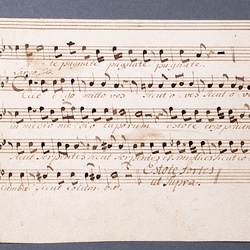 te pugnate pugnate pugnate.
Ecce ego mitto vos sicut o- ves sicut o- ves
in medio me- dio luporum estote ergo pru
sicut serpentes sicut serpentes et simplices sicut co-
lumbæ sicut columbæ.
Estote fortes
ut supra.